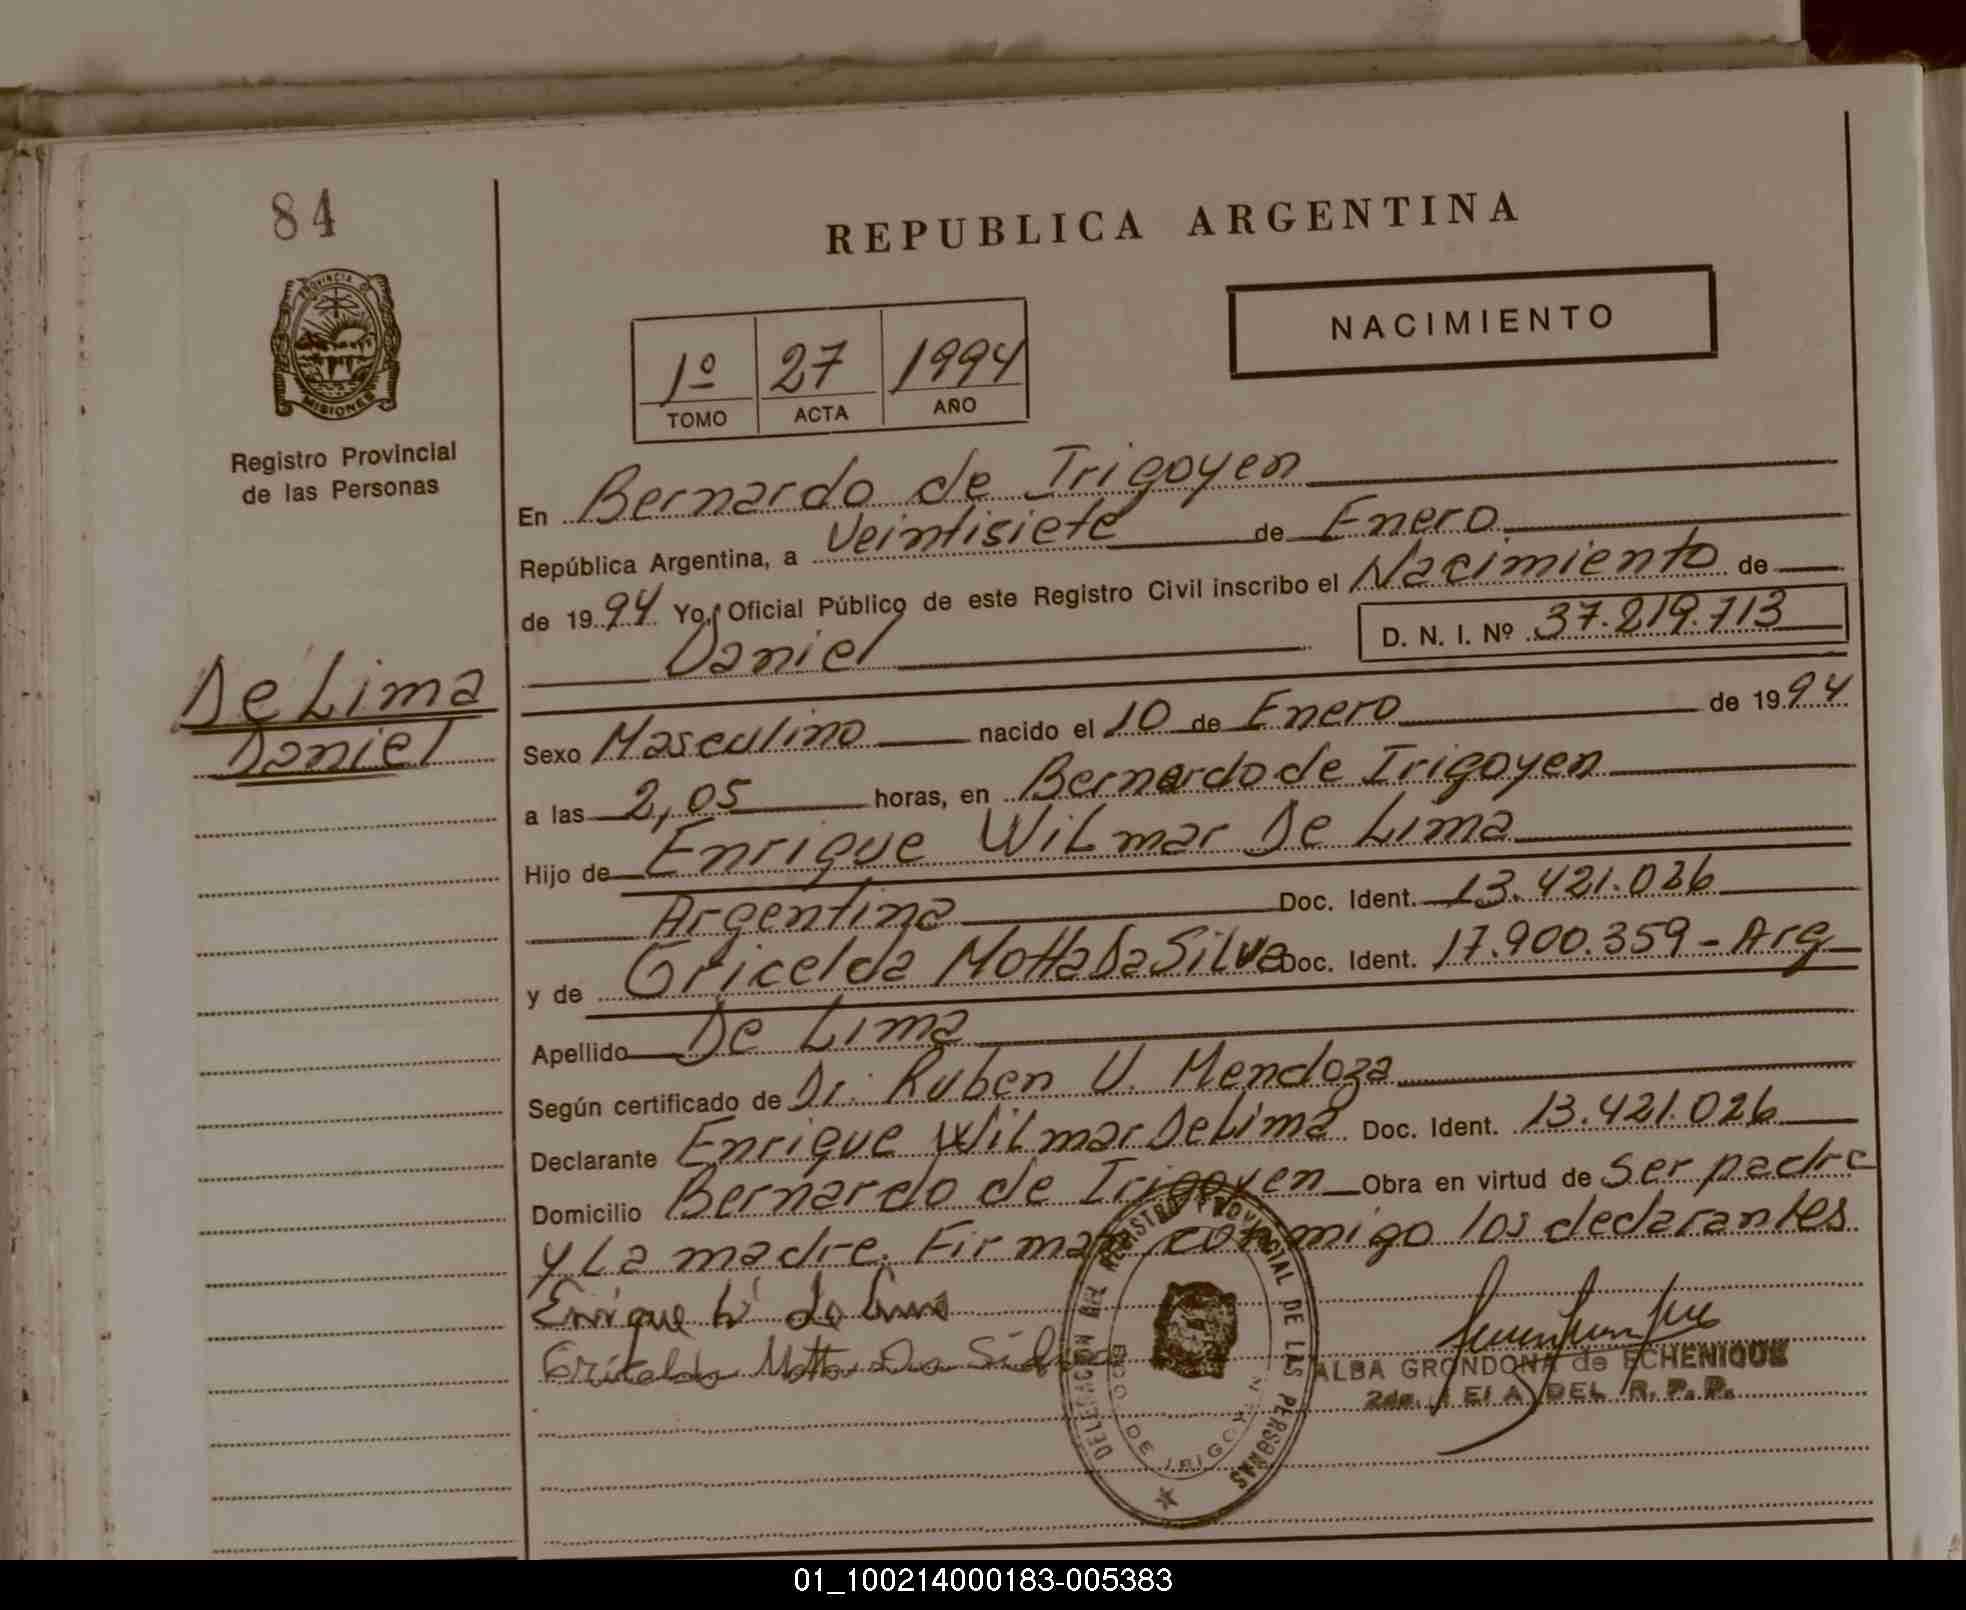 84
PROVINCIA DE
MISIONES
Registro Provincial
de las Personas
De Lima
Daniel
REPUBLICA ARGENTINA
NACIMIENTO
1º 27 1994
TOMO ACTA AÑO
En Bernardo de Irigoyen
República Argentina, a Veintisiete de Enero
de 1994 Yo, Oficial Público de este Registro Civil inscribo el Nacimiento de
Daniel D. N. I. Nº 37.219.713
Sexo Masculino nacido el 10 de Enero de 1994
a las 2,05 horas, en Bernardo de Irigoyen
Hijo de Enrique Wilmar De Lima
Argentina Doc. Ident. 13.421.026
y de Gricelda Motta Da Silva Doc. Ident. 17.900.359 - Arg
Apellido De Lima
Según certificado de Dr. Ruben U. Mendoza
Declarante Enrique Wilmar De Lima Doc. Ident. 13.421.026
Domicilio Bernardo de Irigoyen Obra en virtud de Ser padre
y La madre. Firman conmigo los declarantes
Enrique W de Lima
Gricelda Motta Da Silva
DELEGACION DEL REGISTRO PROVINCIAL DE LAS PERSONAS
BDO DE IRIGOYEN
ALBA GRONDONA de ECHENIQUE
DEL R. P. P.
01_100214000183-005383